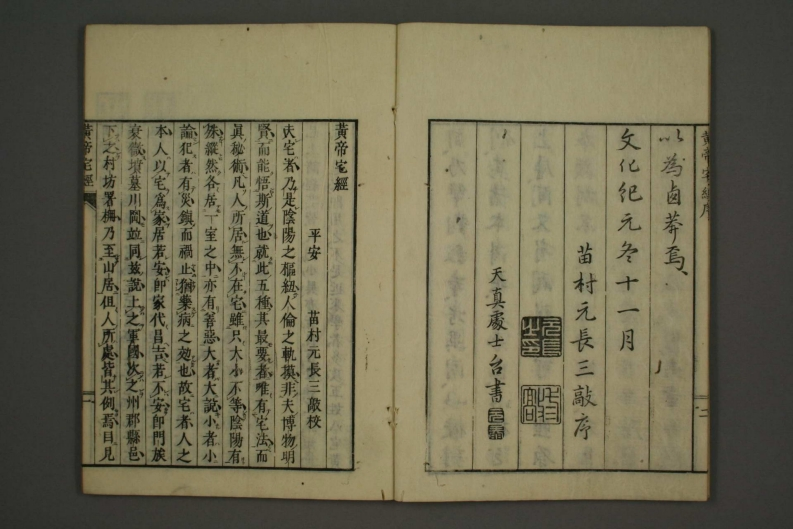 黄帝宅經序
以為鹵莽焉
文化紀元冬十一月
苗村元長三敲序
天真處士台書
二
黄帝宅經
平安 苗村元長三敲校
夫宅者乃是陰陽之樞紐人倫之軌摸非夫博物明
賢而能悟斯道也就此五種其最要者唯有宅法而
真秘術凡人所居無不在宅雖只大小不等陰陽有
殊縱然客居一室之中亦有善惡大者大說小者小
論犯者有災鎮而禍止猶藥病之効也故宅者人之
本人以宅為家居若安即家代昌吉若不安即門族
衰微墳墓川岡並同茲說上之軍國次之州郡縣邑
下之村坊署柵乃至山居但人所處皆其例焉目見
黄帝宅經
一